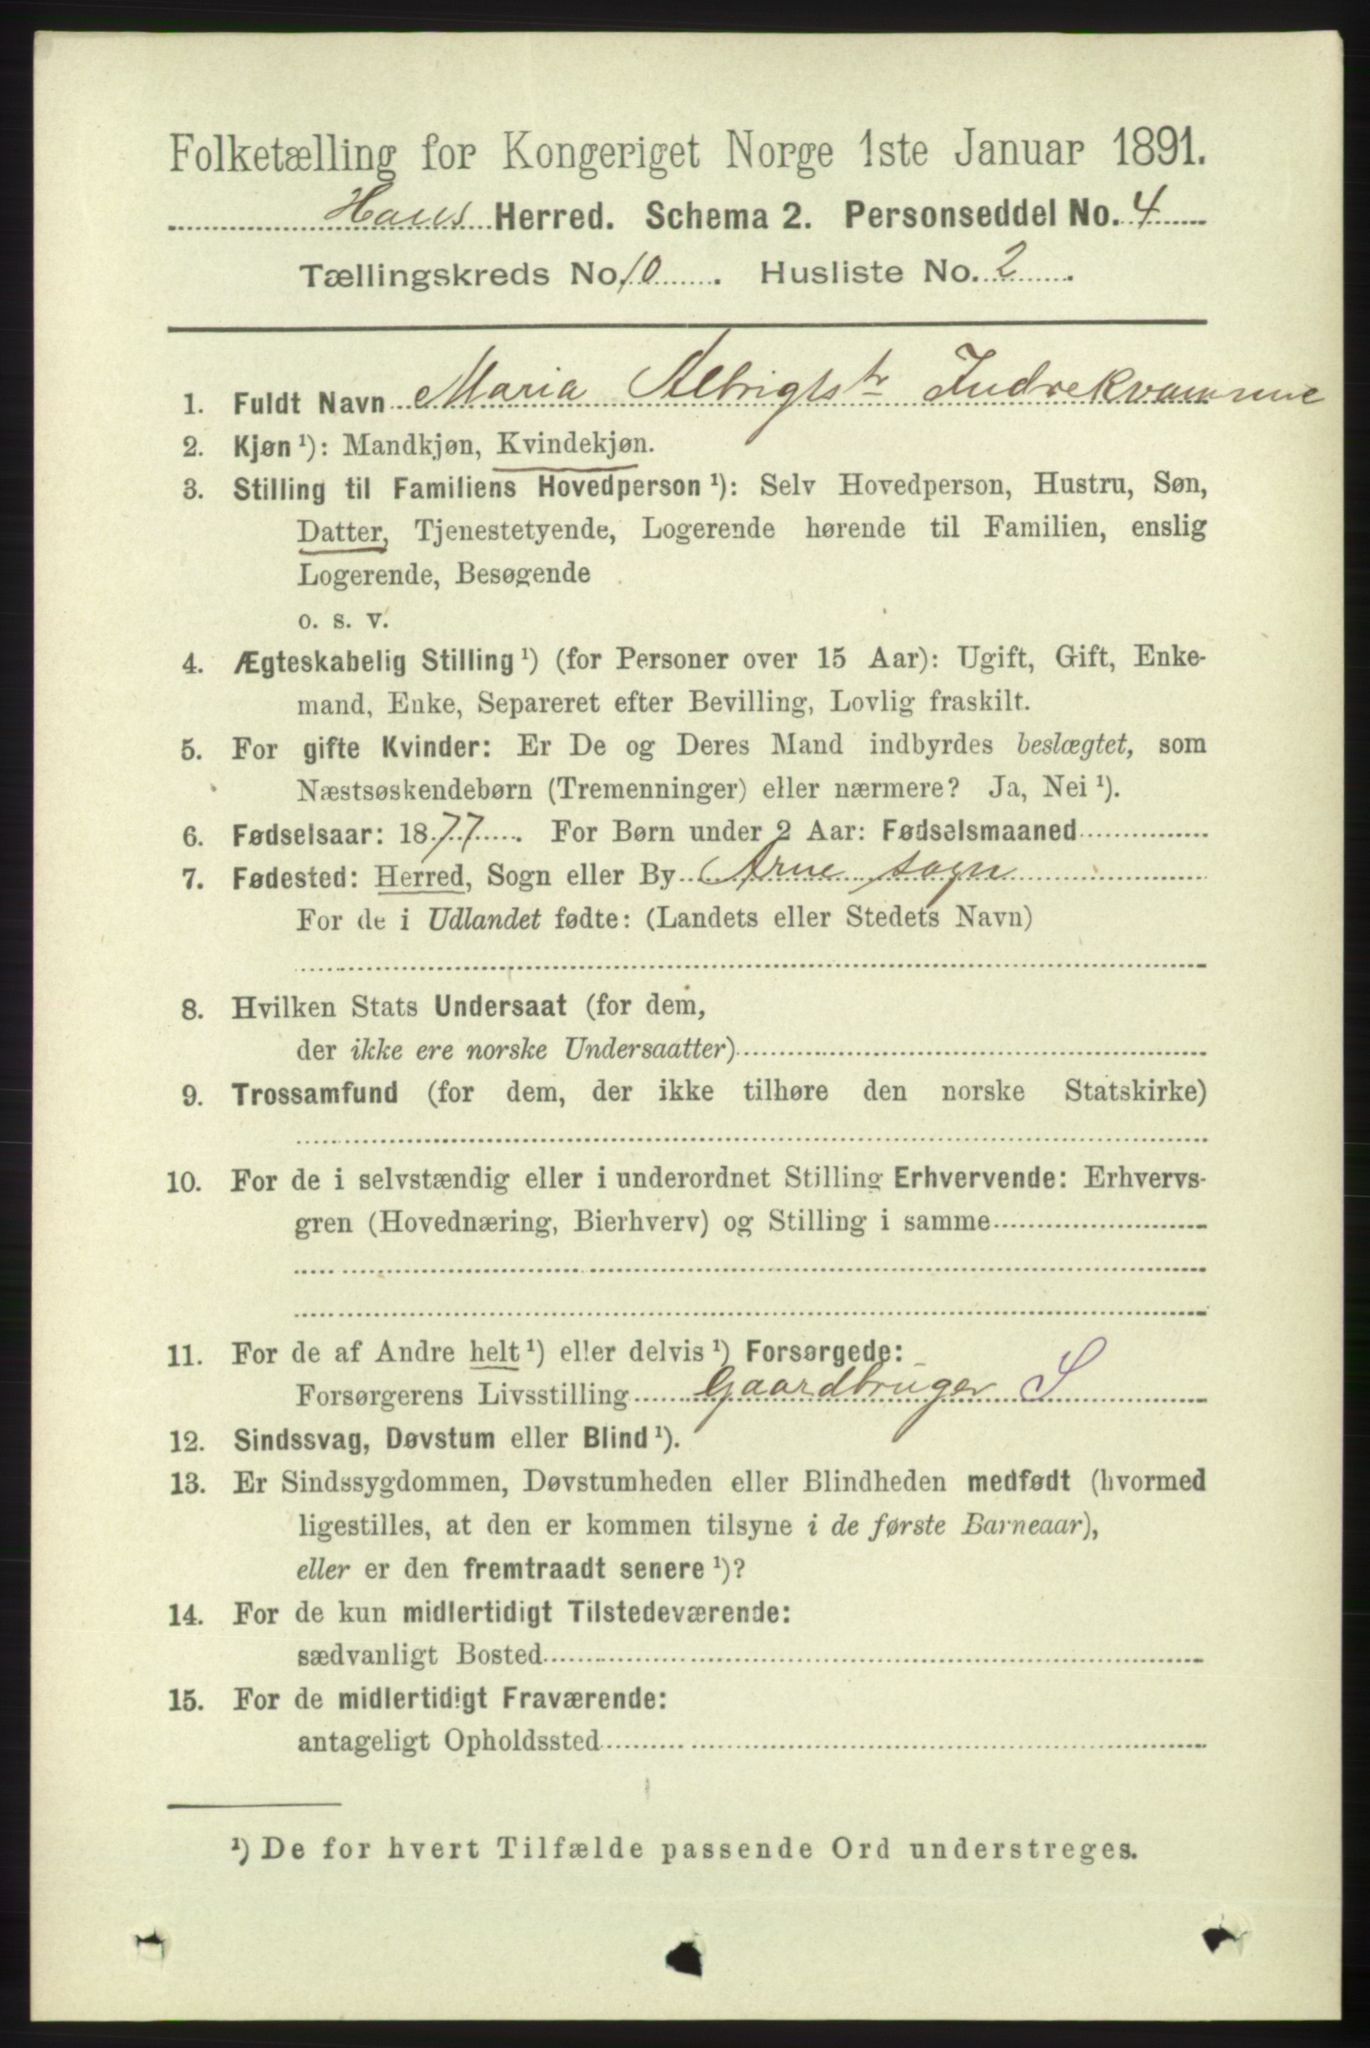 Folketælling for Kongeriget Norge 1ste Januar 1891.
Haus Herred. Schema 2. Personseddel No. 4
Tællingskreds No. 10. Husliste No. 2.
1. Fuldt Navn Maria Albrigtsdr Indrekvamme
2. Kjøn ¹): Mandkjøn, Kvindekjøn.
3. Stilling til Familiens Hovedperson ¹): Selv Hovedperson, Hustru, Søn,
Datter, Tjenestetyende, Logerende hørende til Familien, enslig
Logerende, Besøgende
o. s. v.
4. Ægteskabelig Stilling ¹) (for Personer over 15 Aar): Ugift, Gift, Enke-
mand, Enke, Separeret efter Bevilling, Lovlig fraskilt.
5. For gifte Kvinder: Er De og Deres Mand indbyrdes beslægtet, som
Næstsøskendebørn (Tremenninger) eller nærmere? Ja, Nei ¹).
6. Fødselsaar: 1877. For Børn under 2 Aar: Fødselsmaaned
7. Fødested: Herred, Sogn eller By Arne sogn
For de i Udlandet fødte: (Landets eller Stedets Navn)
8. Hvilken Stats Undersaat (for dem,
der ikke ere norske Undersaatter)
9. Trossamfund (for dem, der ikke tilhøre den norske Statskirke)
10. For de i selvstændig eller i underordnet Stilling Erhvervende: Erhvervs-
gren (Hovednæring, Bierhverv) og Stilling i samme
11. For de af Andre helt ¹) eller delvis ¹) Forsørgede:
Forsørgerens Livsstilling Gaardbruger S
12. Sindssvag, Døvstum eller Blind ¹).
13. Er Sindssygdommen, Døvstumheden eller Blindheden medfødt (hvormed
ligestilles, at den er kommen tilsyne i de første Barneaar),
eller er den fremtraadt senere ¹)?
14. For de kun midlertidigt Tilstedeværende:
sædvanligt Bosted
15. For de midlertidigt Fraværende:
antageligt Opholdssted
¹) De for hvert Tilfælde passende Ord understreges.